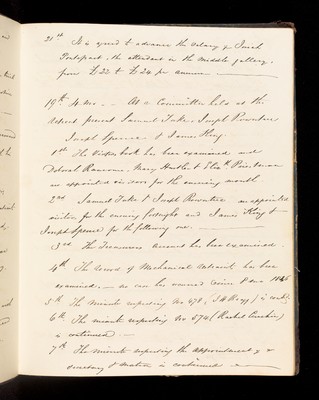 21st It is agreed to advance the Salary of Sarah
Porteport, the attendant in the middle gallery,
from £22 to £24 per annum.
19th 4 mo - - At a Committee held at the
Retreat present Samuel Tuke, Joseph Rowntree
Joseph Spence & James King.
1st The Visitors book has been examined and
Deborah Ransome, Mary Hustler & Elizth
are appointed visitors for the ensuing month
2nd Samuel Tuke & Joseph Rowntree are appointed
visitors for the ensuing fortnight and James King &
Joseph Spence for the following one.
3rd The Treasurers account has been examined.
4th The record of Mechanical restraint has been
examined, - no case has occurred since
5th The minute respecting No 478, is contd
6th The minute respecting No 574 (Rachel
is continued. -
7th The minute respecting the appointment of a
Secretary & Matron is continued -